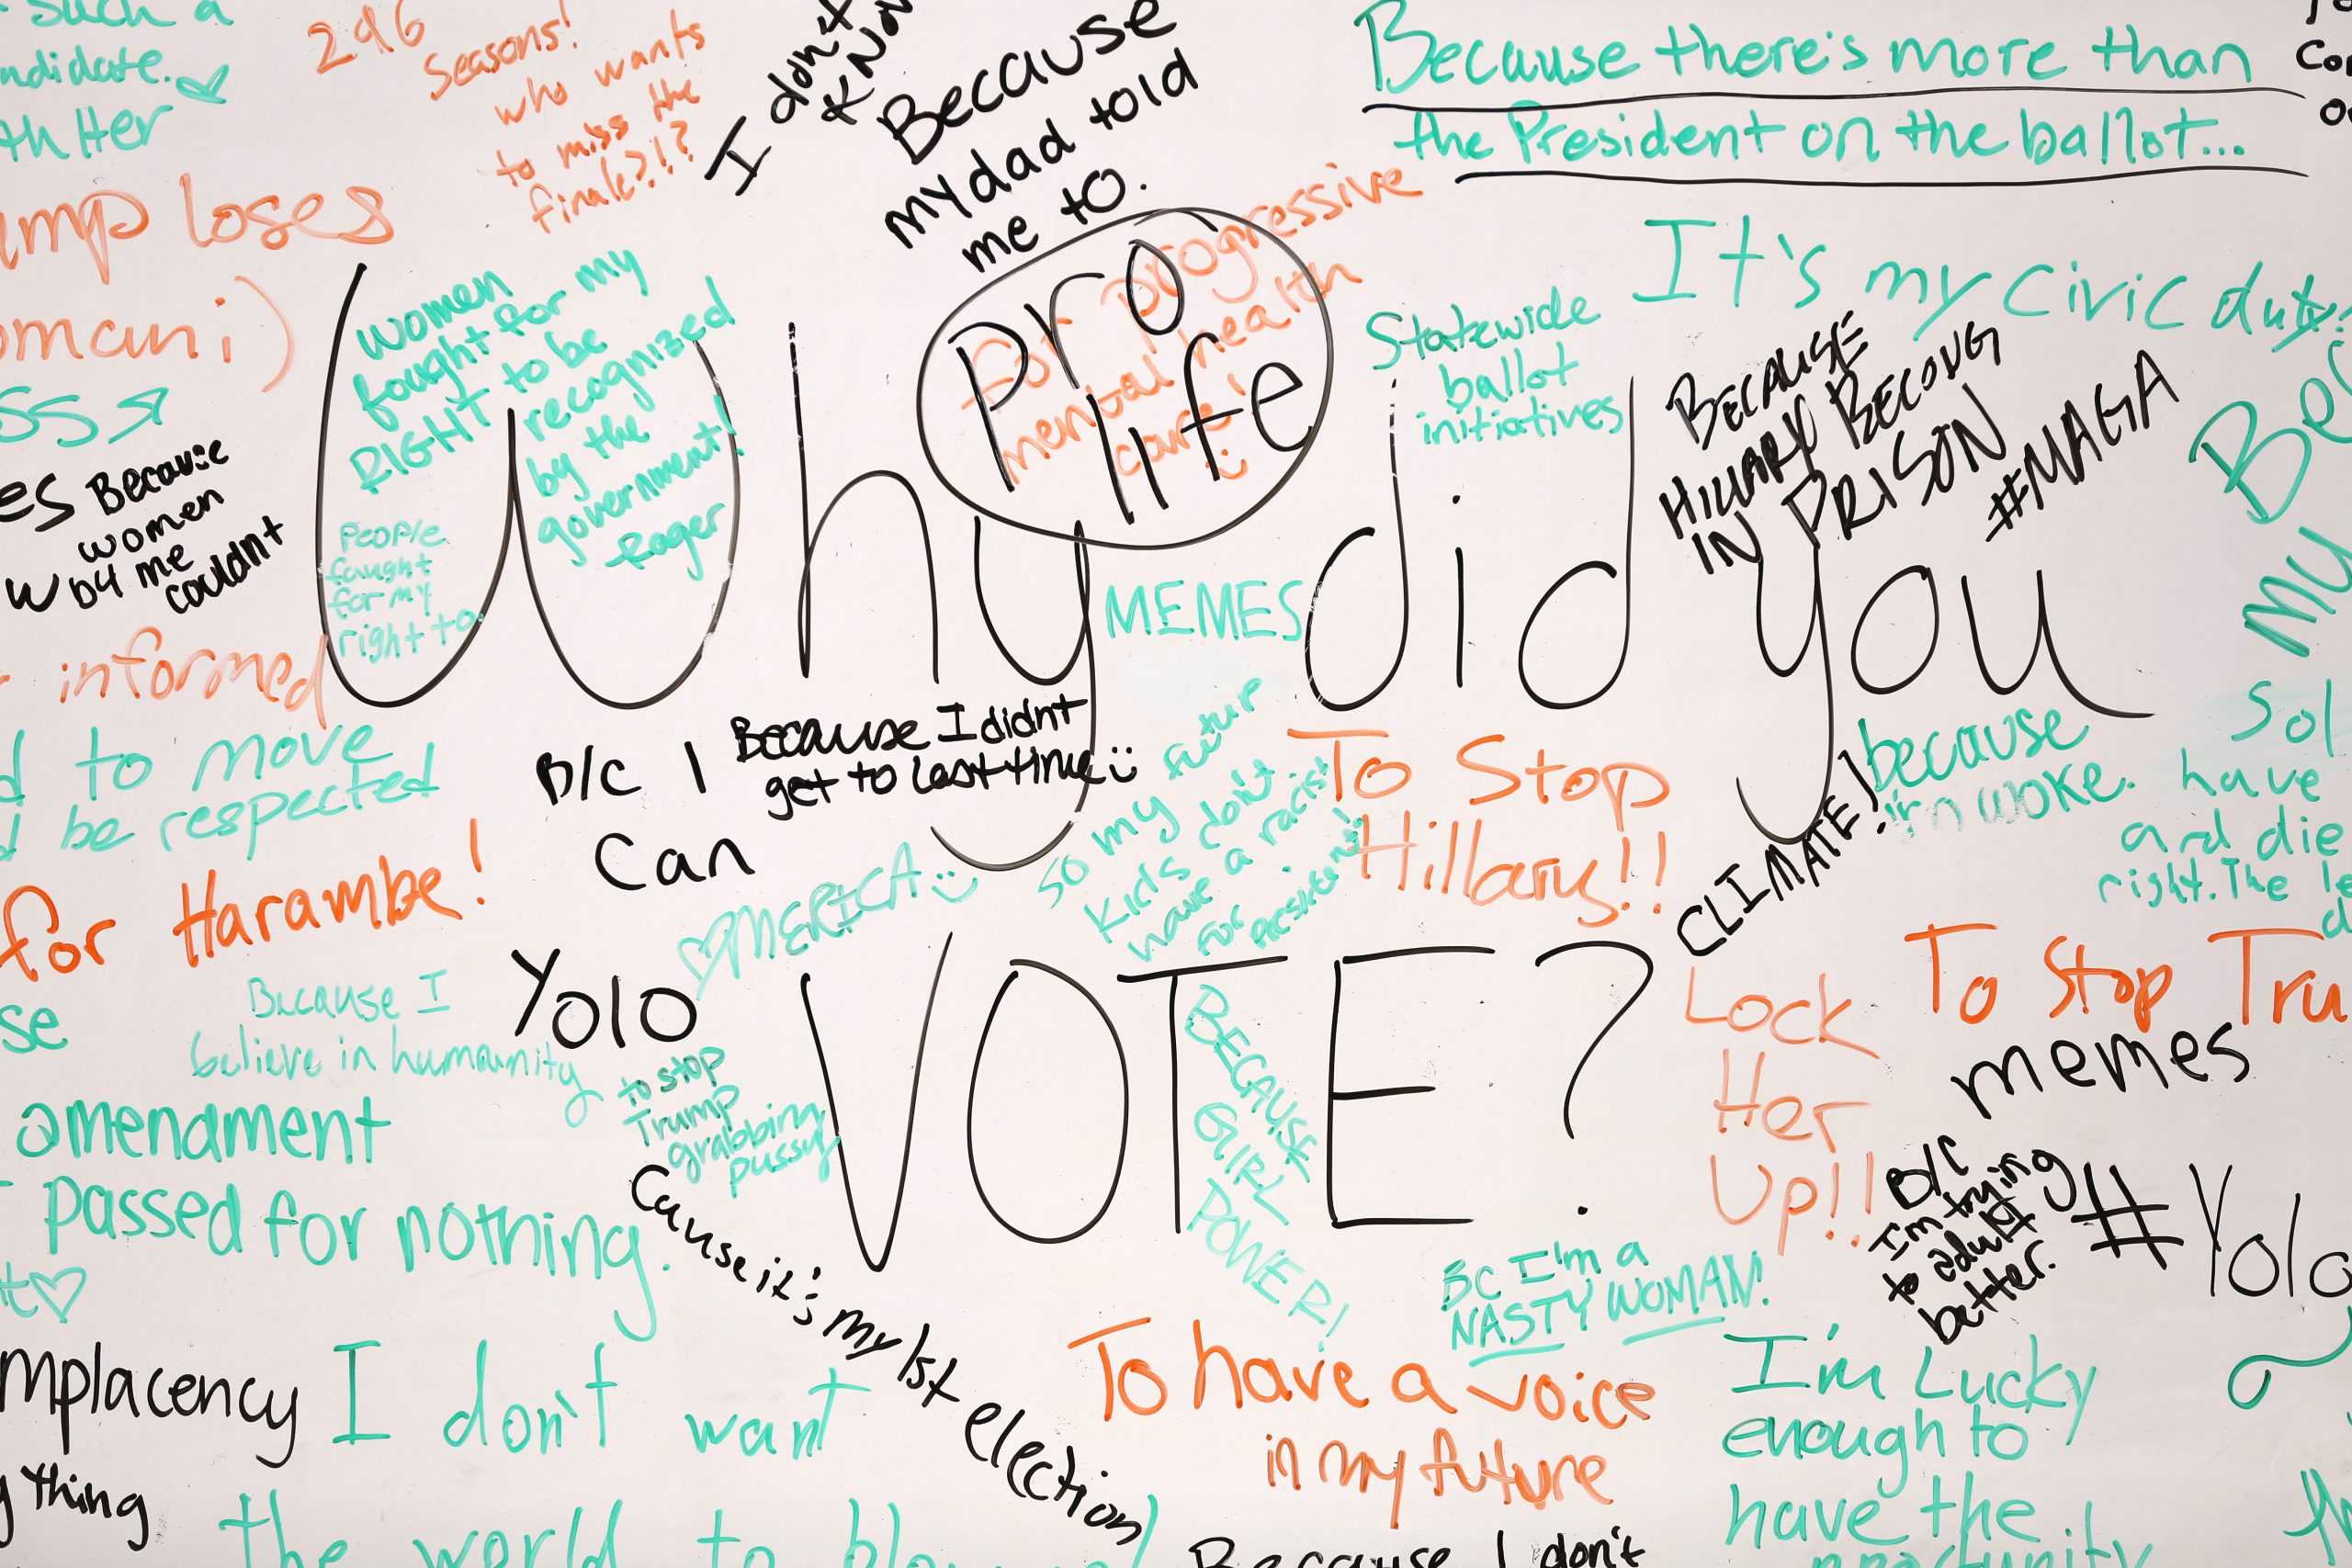 such a
ndidate.
th Her
296
Seasons!
who wants
to miss the
finale?!?
I don't
know
Because
my dad told
me to.
Because there's more than
the President on the ballot...
Co
ump loses
omani)
ss
es Because
women
w b4 me
couldnt
women
fought for my
RIGHT to be
recognized
by the
government!
-Roger
People
fought
for my
right to.
Pro
life
for progressive
mental health
care!
Statewide
ballot
initiatives
It's my civic duty.
BECAUSE
HILLARY BELONG
IN PRISON
#MAGA
Be
my
Why did you
VOTE?
MEMES
informed
d to move
d be respected
for Harambe!
se
B/C I
Can
Because I didnt
get to last time
so my futur
kids don't
have a racist
for president!
To Stop
Hillary!!
CLIMATE!
because
i'm woke.
Sol
have
and die
right. The le
d
MERICA
Yolo
Because I
believe in humanity
to stop
Trump
grabbing
pussy
BECAUSE
GIRL
POWER!
Lock
Her
Up!!
To Stop Tru
memes
B/C
I'm trying
to adult
better.
#Yolo
amendment
passed for nothing.
Cause it's my 1st election
BC I'm a
NASTY WOMAN!
mplacency
I don't want
the world to blow up!
y thing
To have a voice
in my future
I'm Lucky
enough to
have the
opportunity
Because I don't